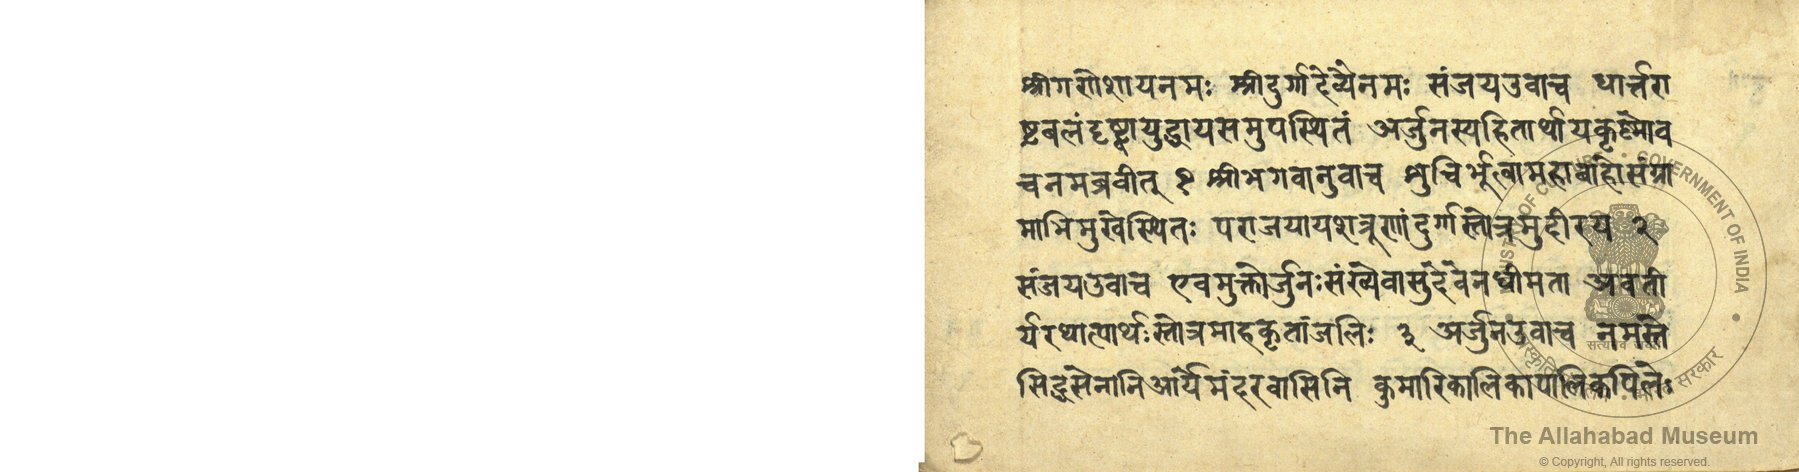 श्रीगणेशायनमः श्रीदुर्गादेव्यैनमः संजयउवाच धार्त्तरा
ष्ट्रबलंदृष्ट्वायुद्धायसमुपस्थितं अर्जुनस्यहितार्थायकृष्णोव
चनमब्रवीत् १ श्रीभगवानुवाच शुचिर्भूत्वामहाबाहोसंग्रा
माभिमुखेस्थितः पराजयायशत्रूणांदुर्गास्तोत्रमुदीरय २
संजयउवाच एवमुक्तोर्जुनःसंख्येवासुदेवेनधीमता अवती
र्यरथात्पार्थःस्तोत्रमाहकृतांजलिः ३ अर्जुनउवाच नमस्ते
सिद्धसेनानिआर्येमंदरवासिनि कुमारिकालिकापालिकपिलेः
GOVERNMENT OF INDIA
सत्यमेव जयते
सरकार
The Allahabad Museum
© Copyright, All rights reserved.